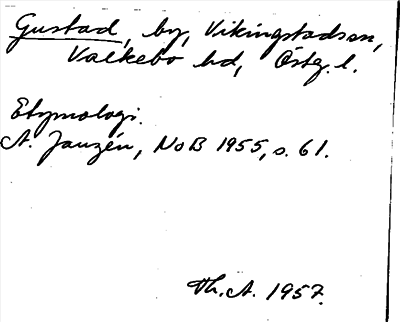 Gustad, by, Vikingstads sn,
Valkebo hd, Östg. l.
Etymologi.
A. Janzén, NoB 1955, s. 61.
Th. A. 1957.